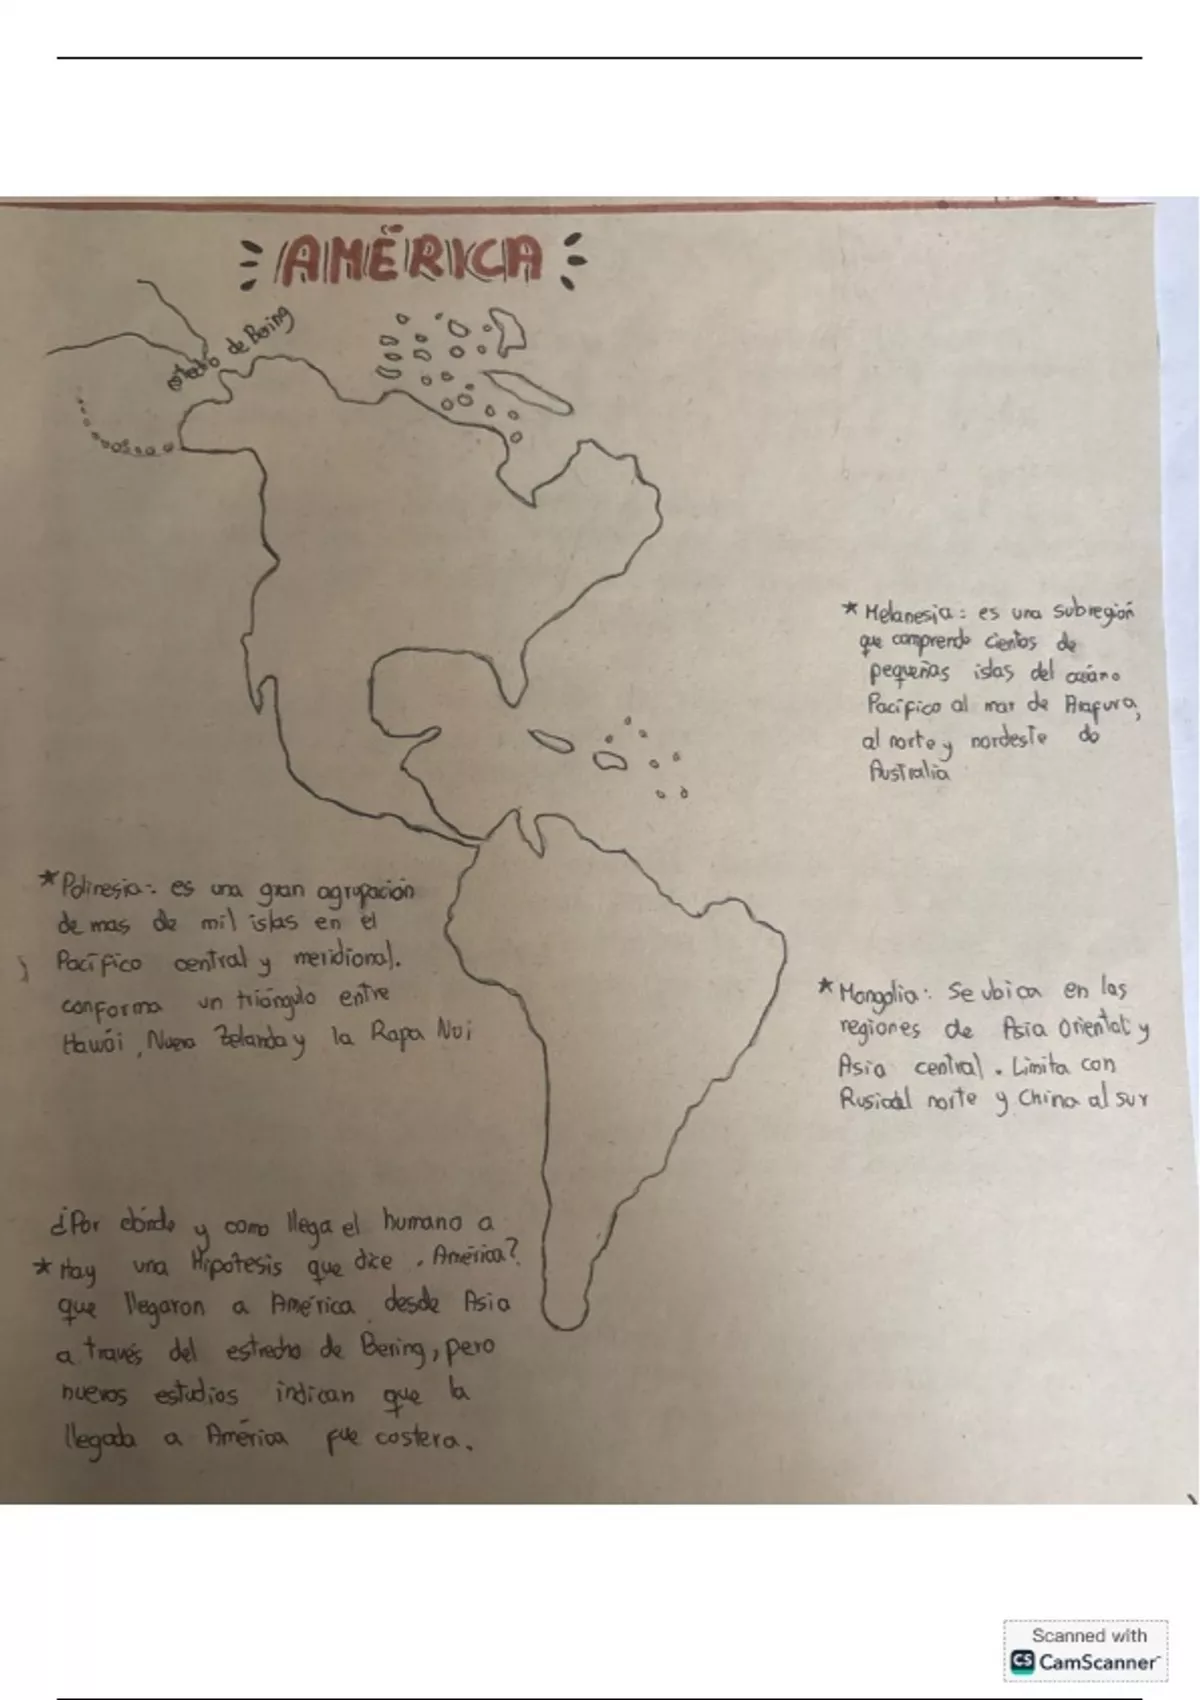 AMÉRICA
estrecho de Bering
* Melanesia: es una subregión
que comprende cientos de
pequeñas islas del océano
Pacífico al mar de Arafura,
al norte y nordeste de
Australia
* Polinesia: es una gran agrupación
de mas de mil islas en el
Pacífico central y meridional.
conforma un triángulo entre
Hawái, Nueva Zelanda y la Rapa Nui
* Mongolia: Se ubica en las
regiones de Asia Oriental y
Asia central. Limita con
Rusia al norte y China al sur
¿Por dónde y como llega el humano a
América?
* Hay una Hipotesis que dice
que llegaron a América desde Asia
a través del estrecho de Bering, pero
nuevos estudios indican que la
llegada a América fue costera.
Scanned with
CS CamScanner